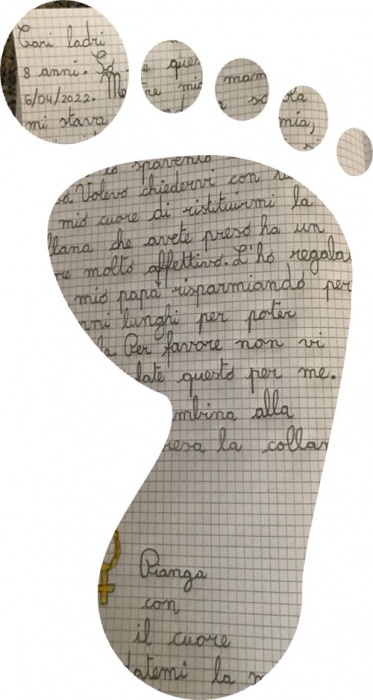 Cari ladri
8 anni. e ques mam
6/04/2022. re mio ola
mi stava mia,
lo spavento
Volevo chiedervi con
mio cuore di ristituirmi la
llana che avete preso ha un
re molto affettivo. L'ho regala
mio papà risparmiando per
nni lunghi per poter
la Per favore non vi
late questo per me.
mbina alla
resa la collan
Pianga
con
il cuore
datemi la